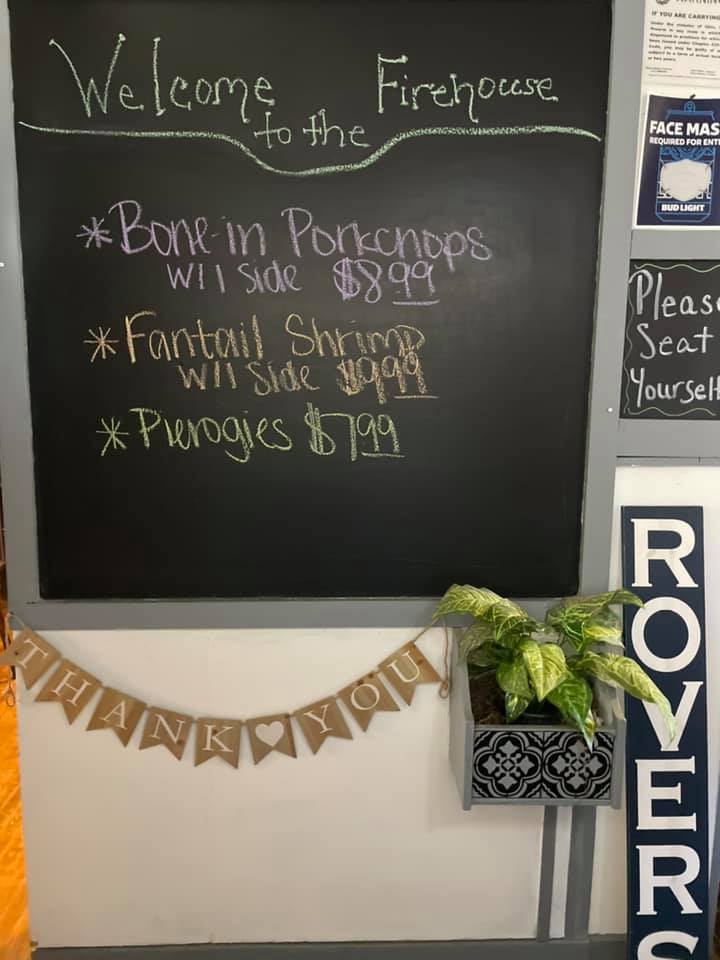 Welcome Firehouse
to the
*Bone-in Porkchops
W/1 Side $8.99
*Fantail Shrimp
W/1 Side $9.99
*Pierogies $7.99
IF YOU ARE CARRYING
FACE MAS
REQUIRED FOR ENT
BUD LIGHT
Please
Seat
Yourself
THANK YOU
ROVERS